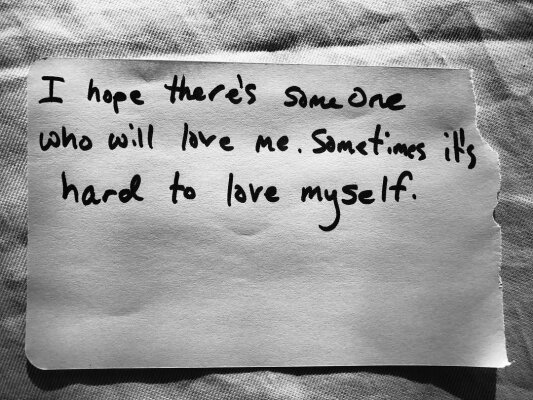 I hope there's someone
who will love me. Sometimes it's
hard to love myself.